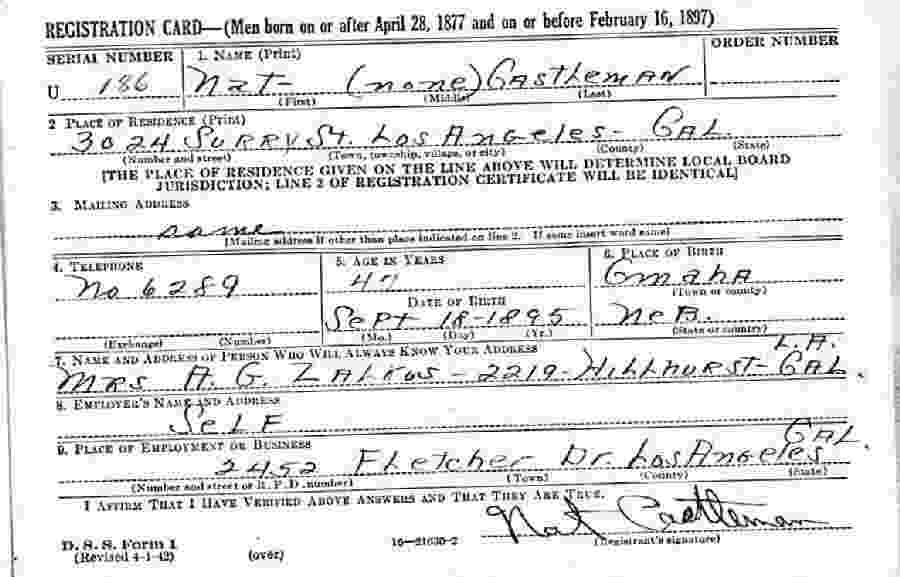 REGISTRATION CARD—(Men born on or after April 28, 1877 and on or before February 16, 1897)
SERIAL NUMBER 1. NAME (Print) ORDER NUMBER
U 186 Nat (none) CASTLEMAN
(First) (Middle) (Last)
2 PLACE OF RESIDENCE (Print)
3024 SURRY ST. LOS ANGELES- CAL.
(Number and street) (Town, township, village, or city) (County) (State)
[THE PLACE OF RESIDENCE GIVEN ON THE LINE ABOVE WILL DETERMINE LOCAL BOARD
JURISDICTION; LINE 2 OF REGISTRATION CERTIFICATE WILL BE IDENTICAL]
3. MAILING ADDRESS
same
[Mailing address if other than place indicated on line 2. If same insert word same]
4. TELEPHONE 5. AGE IN YEARS 6. PLACE OF BIRTH
No 6289 47 OmahA
(Town or county)
DATE OF BIRTH
Sept 18-1895 NeB.
(Exchange) (Number) (Mo.) (Day) (Yr.) (State or country)
7. NAME AND ADDRESS OF PERSON WHO WILL ALWAYS KNOW YOUR ADDRESS
L.A.
MRS A. G. - 2219- HILLHURST- CAL.
8. EMPLOYER'S NAME AND ADDRESS
SeLF
9. PLACE OF EMPLOYMENT OR BUSINESS
CAL.
2452 FLetcher Dr. Los ANgeles
(Number and street or R. F. D. number) (Town) (County) (State)
I AFFIRM THAT I HAVE VERIFIED ABOVE ANSWERS AND THAT THEY ARE TRUE.
Nat Castleman
D. S. S. Form 1 16—21630-2 (Registrant's signature)
(Revised 4-1-42) (over)